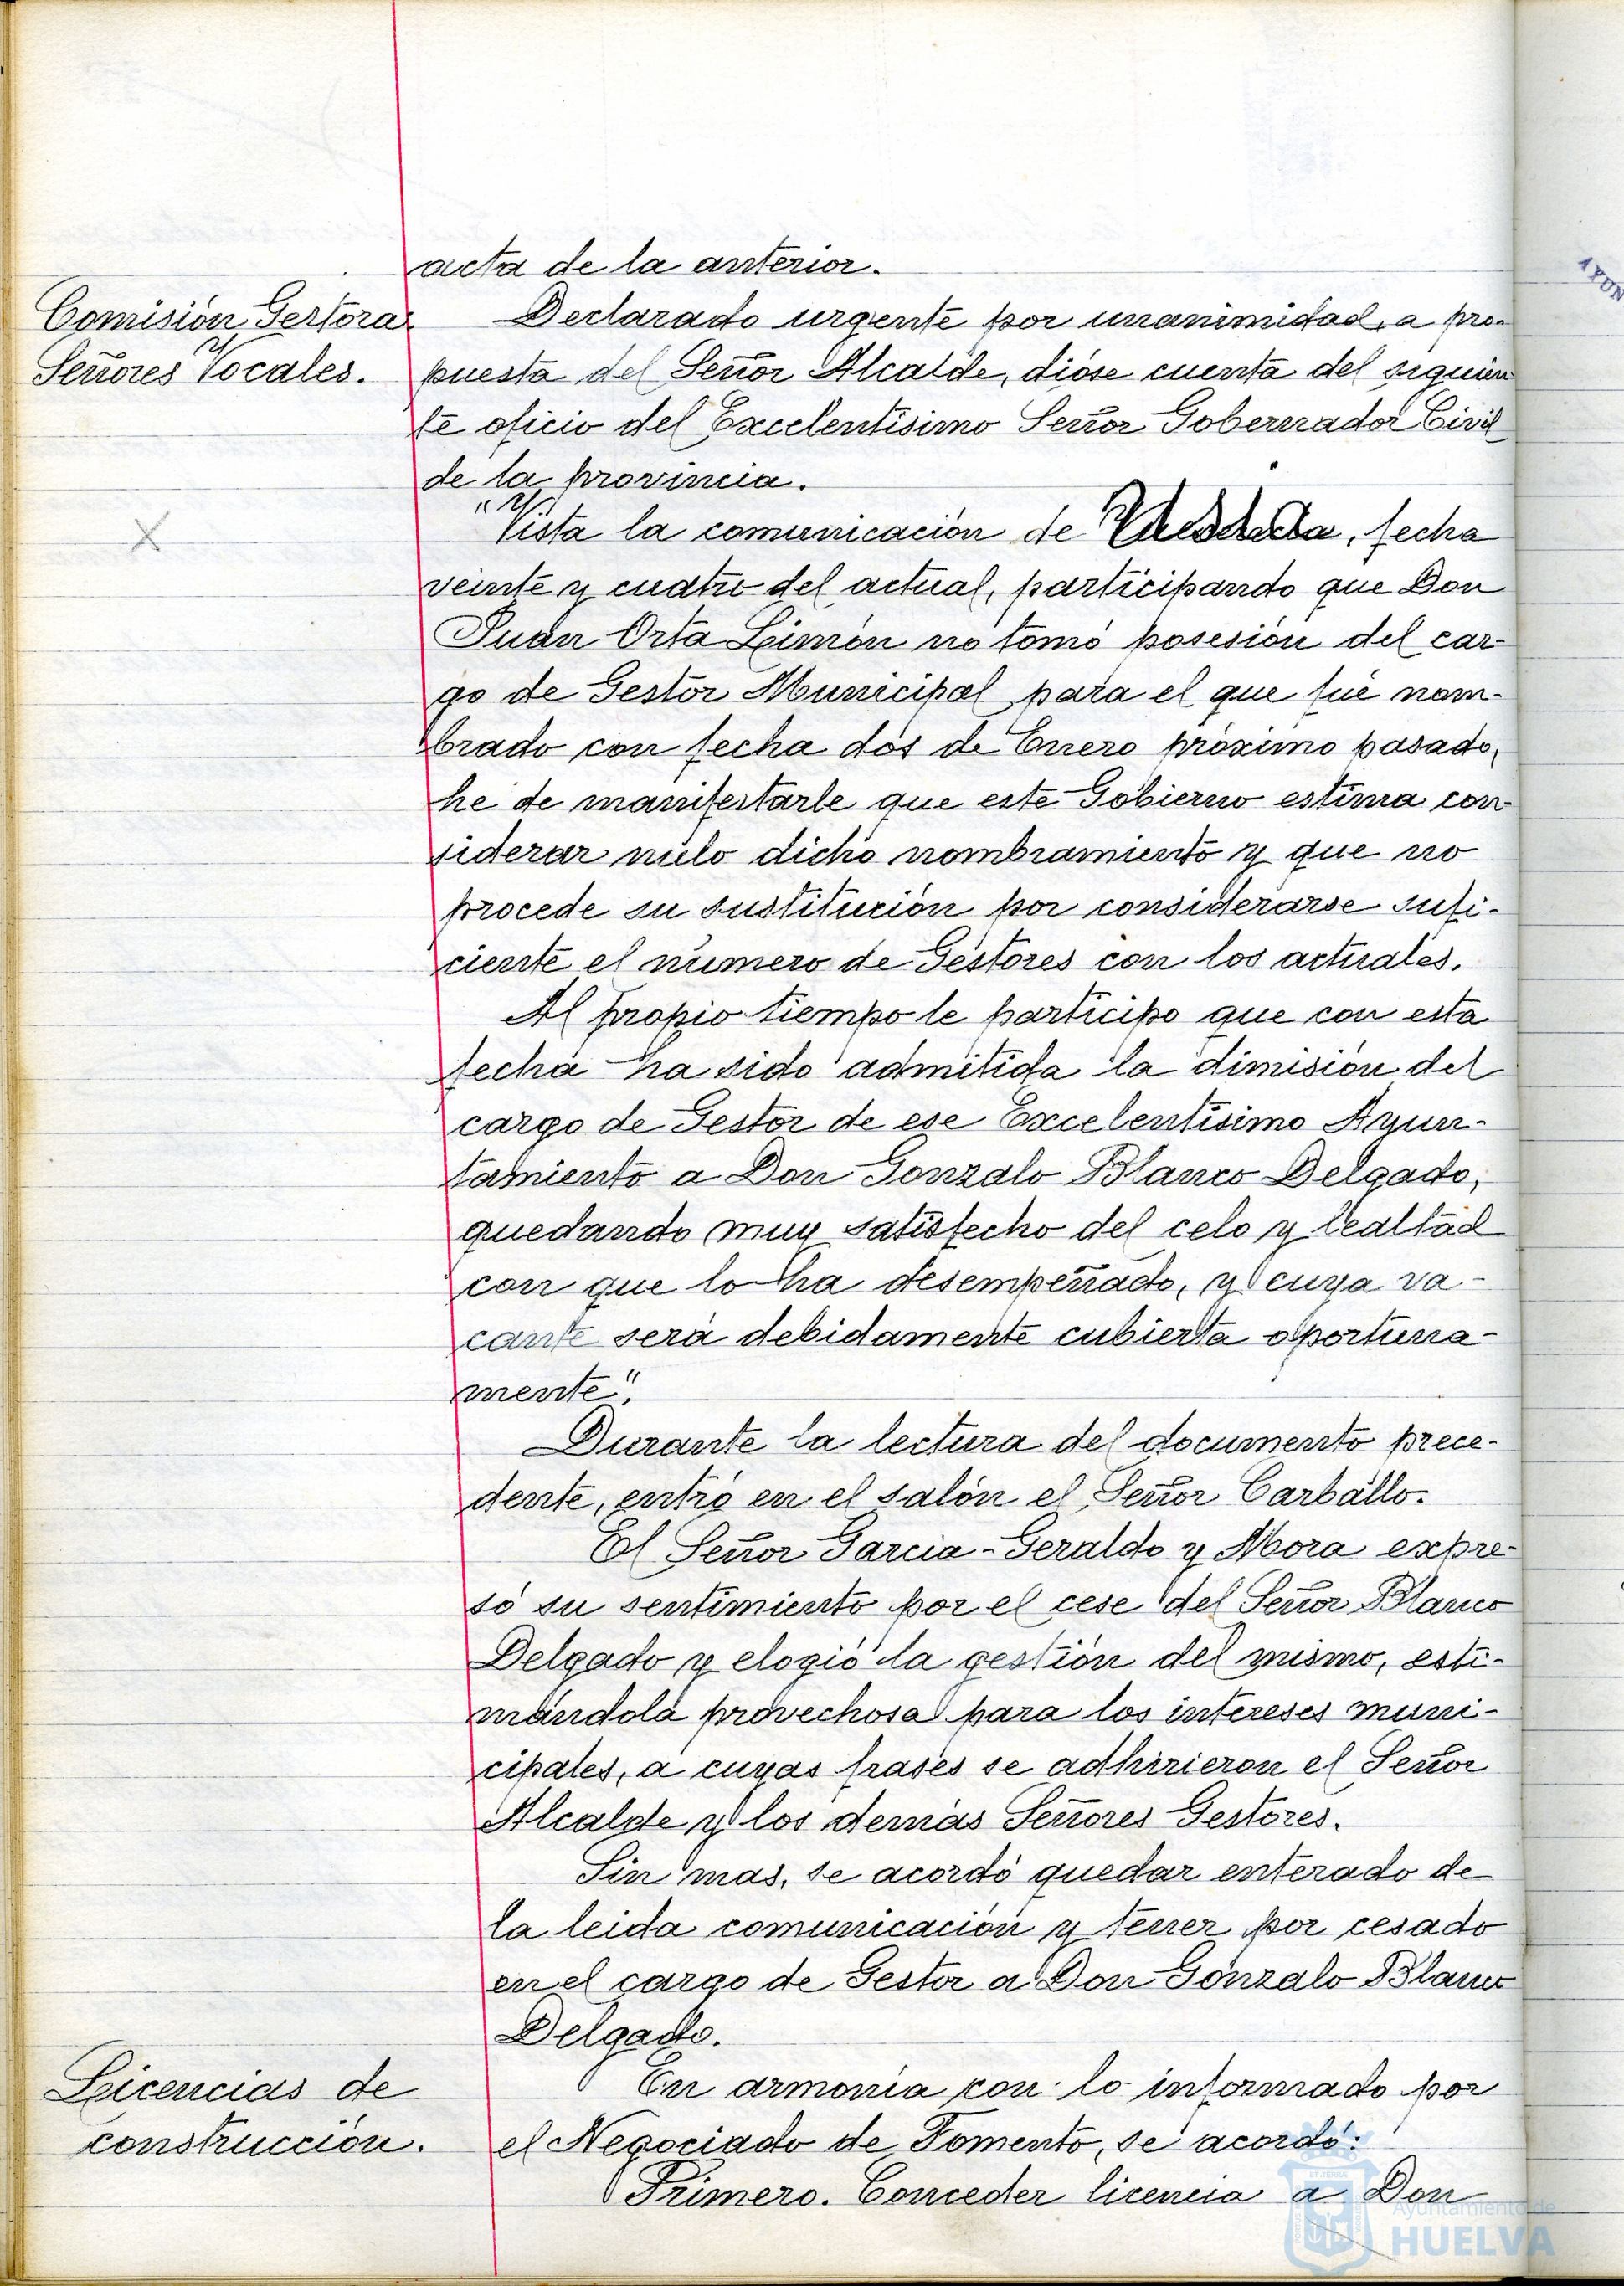 acta de la anterior.
Comisión Gestora
Señores Vocales.
Declarado urgente por unanimidad, a pro-
puesta del Señor Alcalde, dióse cuenta del siguien
te oficio del Excelentísimo Señor Gobernador Civil
de la provincia.
"Vista la comunicación de, fecha
veinte y cuatro del actual, participando que Don
Juan Orta Limón no tomó posesión del car-
go de Gestor Municipal para el que fué nom-
brado con fecha dos de Enero próximo pasado,
he de manifestarle que este Gobierno estima con-
siderar nulo dicho nombramiento y que no
procede su sustitución por considerarse sufi-
ciente el número de Gestores con los actuales.
Al propio tiempo le participo que con esta
fecha ha sido admitida la dimisión del
cargo de Gestor de ese Excelentísimo Ayun-
tamiento a Don Gonzalo Blanco Delgado,
quedando muy satisfecho del celo y lealtad
con que lo ha desempeñado, y cuya va-
cante será debidamente cubierta oportuna-
mente".
Durante la lectura del documento prece-
dente, entró en el salón el Señor Carballo.
El Señor Garcia-Geraldo y Mora expre-
só su sentimiento por el cese del Señor Blanco
Delgado y elogió la gestión del mismo, esti-
mándola provechosa para los intereses muni-
cipales, a cuyas frases se adhirieron el Señor
Alcalde y los demás Señores Gestores.
Sin mas, se acordó quedar enterado de
la leida comunicación y tener por cesado
en el cargo de Gestor a Don Gonzalo Blanco
Delgado.
Licencias de
construcción.
En armonía con lo informado por
el Negociado de Fomento, se acordó:
Primero. Conceder licencia a Don
Ayuntamiento de
HUELVA
AYUN